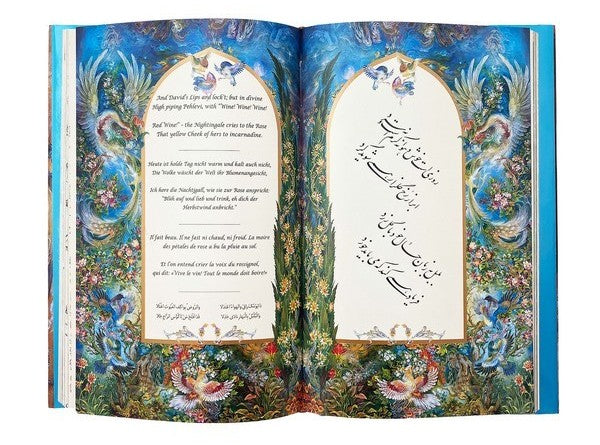 And David's Lips and lock't; but in divine
High piping Pehlevi, with "Wine! Wine! Wine!
Red Wine!" - the Nightingale cries to the Rose
That yellow Cheek of hers to incarnadine.
Heute ist holde Tag nicht warm und kalt auch nicht,
Die Wolke wäscht der Welt ihr Blumenangesicht,
Ich höre die Nachtigall, wie sie zur Rose anspricht:
"Blüh auf und lieb und trink, eh dich der
Herbstwind anbricht."
Il fait beau. Il ne fait ni chaud, ni froid. La moire
des pétales de rose a bu la pluie au sol.
Et l'on entend crier la voix du rossignol,
qui dit: «Vive le vin! Tout le monde doit boire!»
روزیست خوش و هوا نه گرمست و نه سرد
ابر از رخ گلزار همی شوید گرد
بلبل به زبان حال خود با گل زرد
فریاد همی کند که می باید خورد